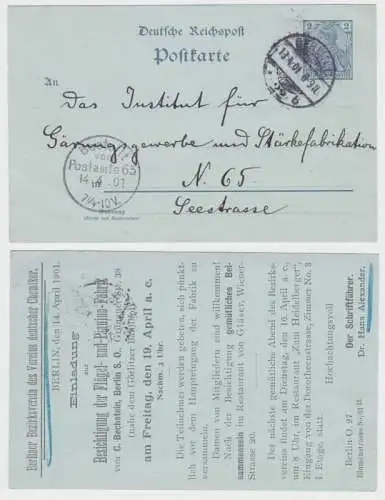 Deutsche Reichspost
Postkarte
2
2
An
Das Institut für
Gärungsgewerbe und Stärkefabrikation
N. 65.
Seestrasse
Postamte 65
Berliner Bezirksverein des Vereins deutscher Chemiker.
BERLIN, den 14. April 1901.
Einladung
zur
Besichtigung der Flügel- und Pianino-Fabrik
von C. Bechstein, Berlin S. O.
(nahe dem Görlitzer Bahnhof)
am Freitag, den 19. April a. c.
Nachm. 4 Uhr.
Die Teilnehmer werden gebeten, sich pünkt-
lich vor dem Haupteingang der Fabrik zu
versammeln.
Damen von Mitgliedern sind willkommen!
Nach der Besichtigung gemütliches Bei-
sammensein im Restaurant von Gläser, Wiener-
Strasse 20.
Der nächste gemütliche Abend des Bezirks-
vereins findet am Dienstag, den 16. April a. c.,
um 8 Uhr, im Restaurant „Zum Heidelberger"
Eingang von der Dorotheenstrasse, Zimmer No. 3
I. Etage, statt.
Hochachtungsvoll
Der Schriftführer.
Dr. Hans Alexander,
Berlin O. 27